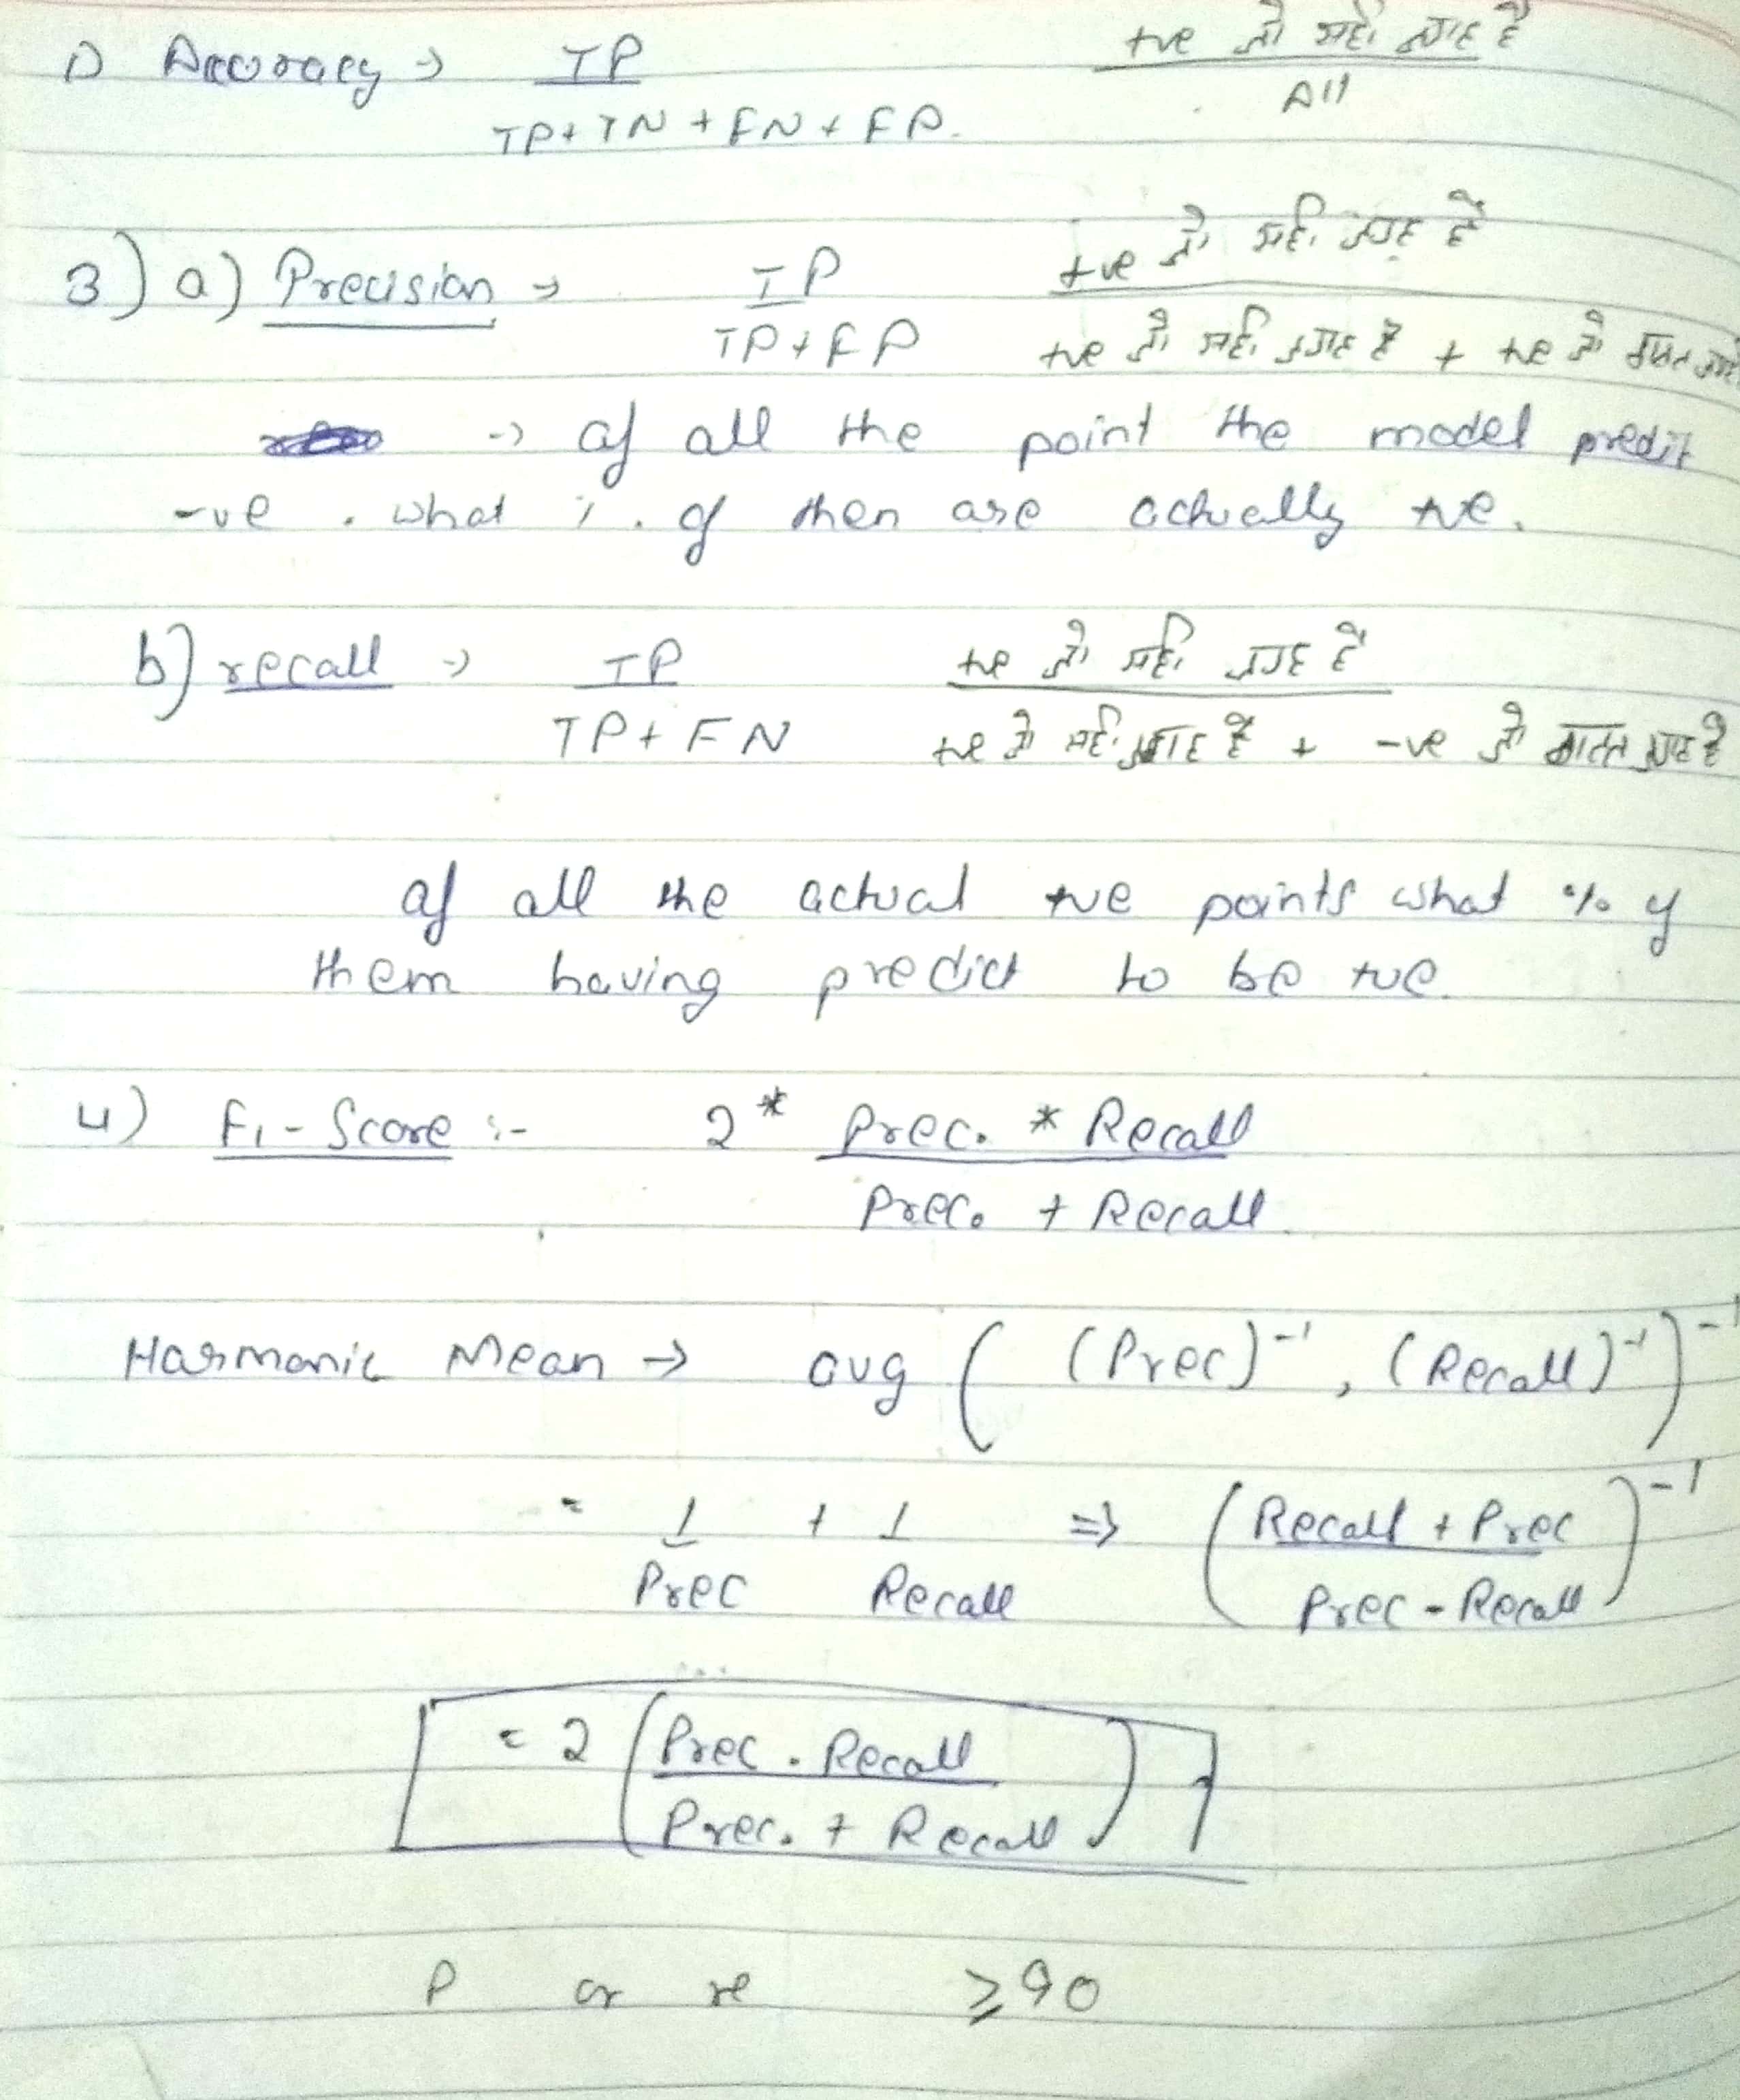 1) Accuracy → TP / TP + TN + FN + FP.
+ve जो सही / All
3) a) Precision → TP / TP + FP
+ve जो सही / +ve जो सही + +ve जो
→ of all the point the model predit
-ve . what %. of then are actually +ve.
b) recall → TP / TP + FN
+ve जो सही / +ve जो सही + -ve जो
of all the actual +ve points what % of
them having predict to be +ve.
4) F1 - Score :- 2 * Prec. * Recall / Prec. + Recall
Harmonic Mean → avg ( (Prec)⁻¹ , (Recall)⁻¹ )⁻¹
= 1 / Prec + 1 / Recall ⇒ ( Recall + Prec / Prec - Recall )⁻¹
= 2 ( Prec . Recall / Prec. + Recall )
P or re ≥ 90